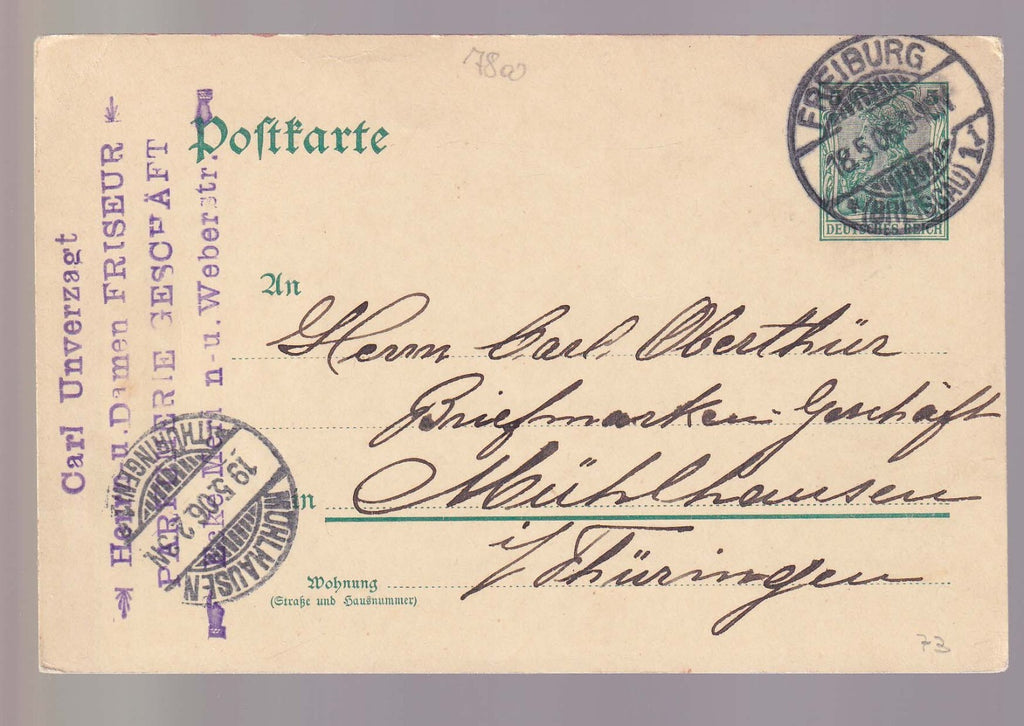 78a
Postkarte
FREIBURG
18.5.06
(BREISGAU) 1.
DEUTSCHES REICH
An
Herrn Carl Oberthür
Briefmarken-Geschäft
in Mühlhausen
i/Thüringen
Wohnung
(Straße und Hausnummer)
73
Carl Unverzagt
Her u. Damen FRISEUR
GESCHÄFT
n-u. Weberstr.
MÜHLHAUSEN
19.5.06.
(THÜRINGEN)